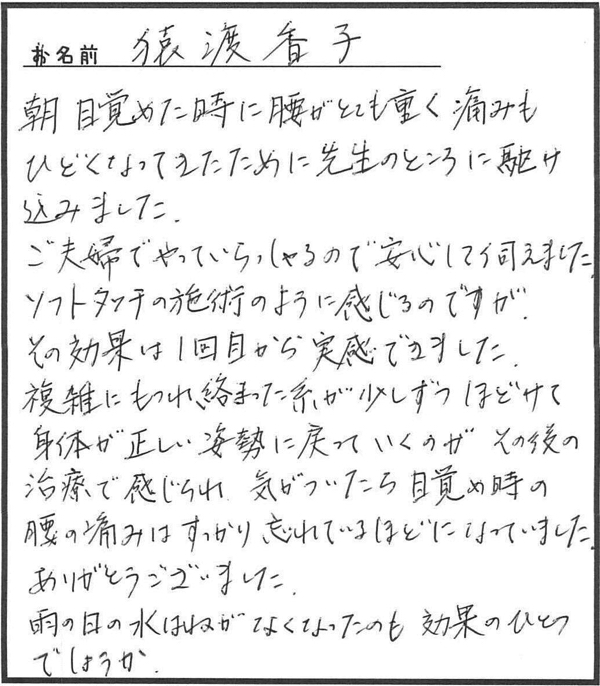 お名前 猿渡香子
朝 目覚めた時に腰がとても重く 痛みも
ひどくなってきたために先生のところに駆け
込みました.
ご夫婦でやっていらっしゃるので安心して伺えました.
ソフトタッチの施術のように感じるのですが.
その効果は1回目から実感できました.
複雑にもつれ絡まった糸が少しずつほどけて
身体が正しい姿勢に戻っていくのが その後の
治療で感じられ 気がついたら目覚め時の
腰の痛みはすっかり忘れているほどになっていました.
ありがとうございました.
雨の日の水はねがなくなったのも 効果のひとつ
でしょうか.